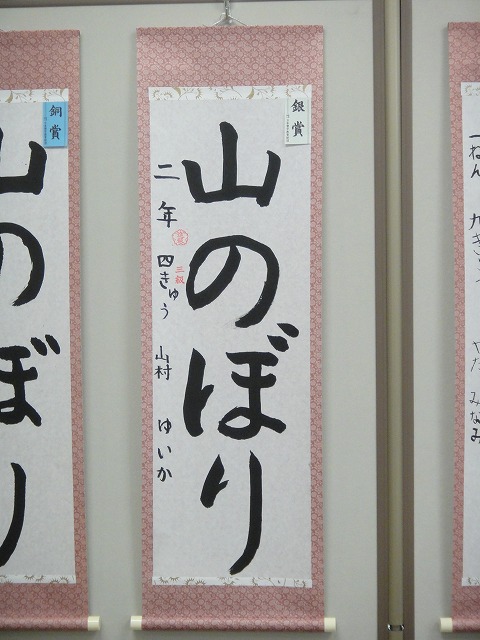 一ねん 九きゅう やだ みなみ
銀賞
山のぼり
二年 四きゅう 山村 ゆいか
三級
銅賞
山のぼり